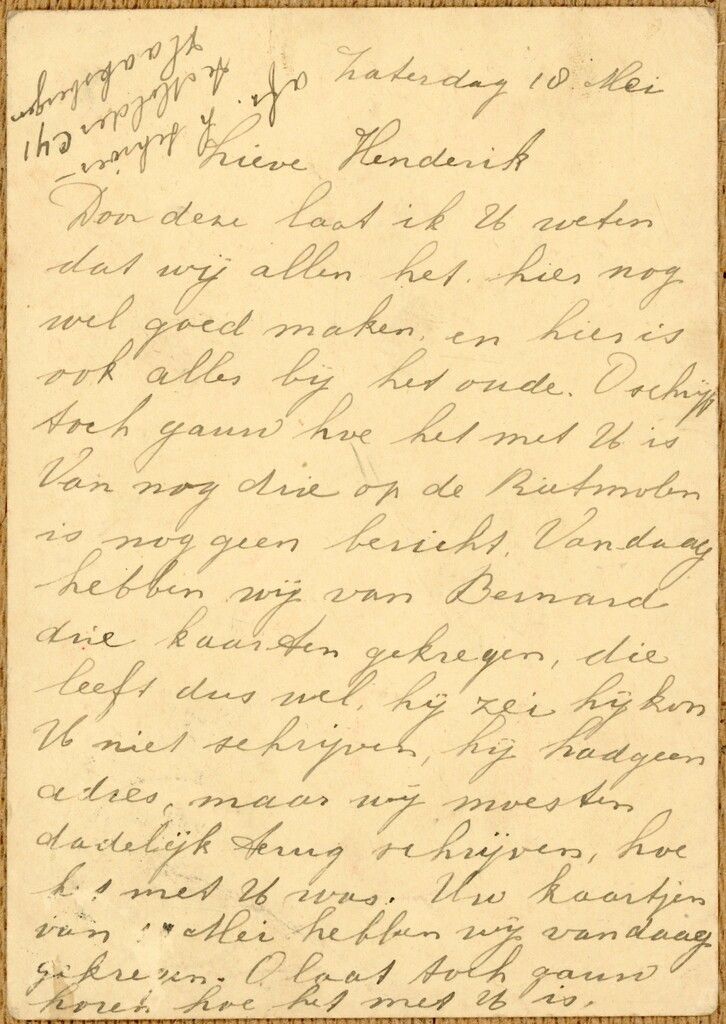 Zaterdag 18 Mei
afz.
H schier-
de Molder C41
Haaksbergen
Lieve Henderik
Door deze laat ik U weten
dat wij allen het. hier nog
wel goed maken, en hier is
ook alles bij het oude. O schrijf
toch gauw hoe het met U is
Van nog drie op de Rietmolen
is nog geen bericht. Vandaag
hebben wij van Bernard
drie kaarten gekregen, die
leeft dus wel, hij zei hij kon
U niet schrijven, hij had geen
adres, maar wij moesten
dadelijk terug schrijven, hoe
h t met U was. Uw kaartjen
van Mei hebben wij vandaag
gekregen. O laat toch gauw
horen hoe het met U is.